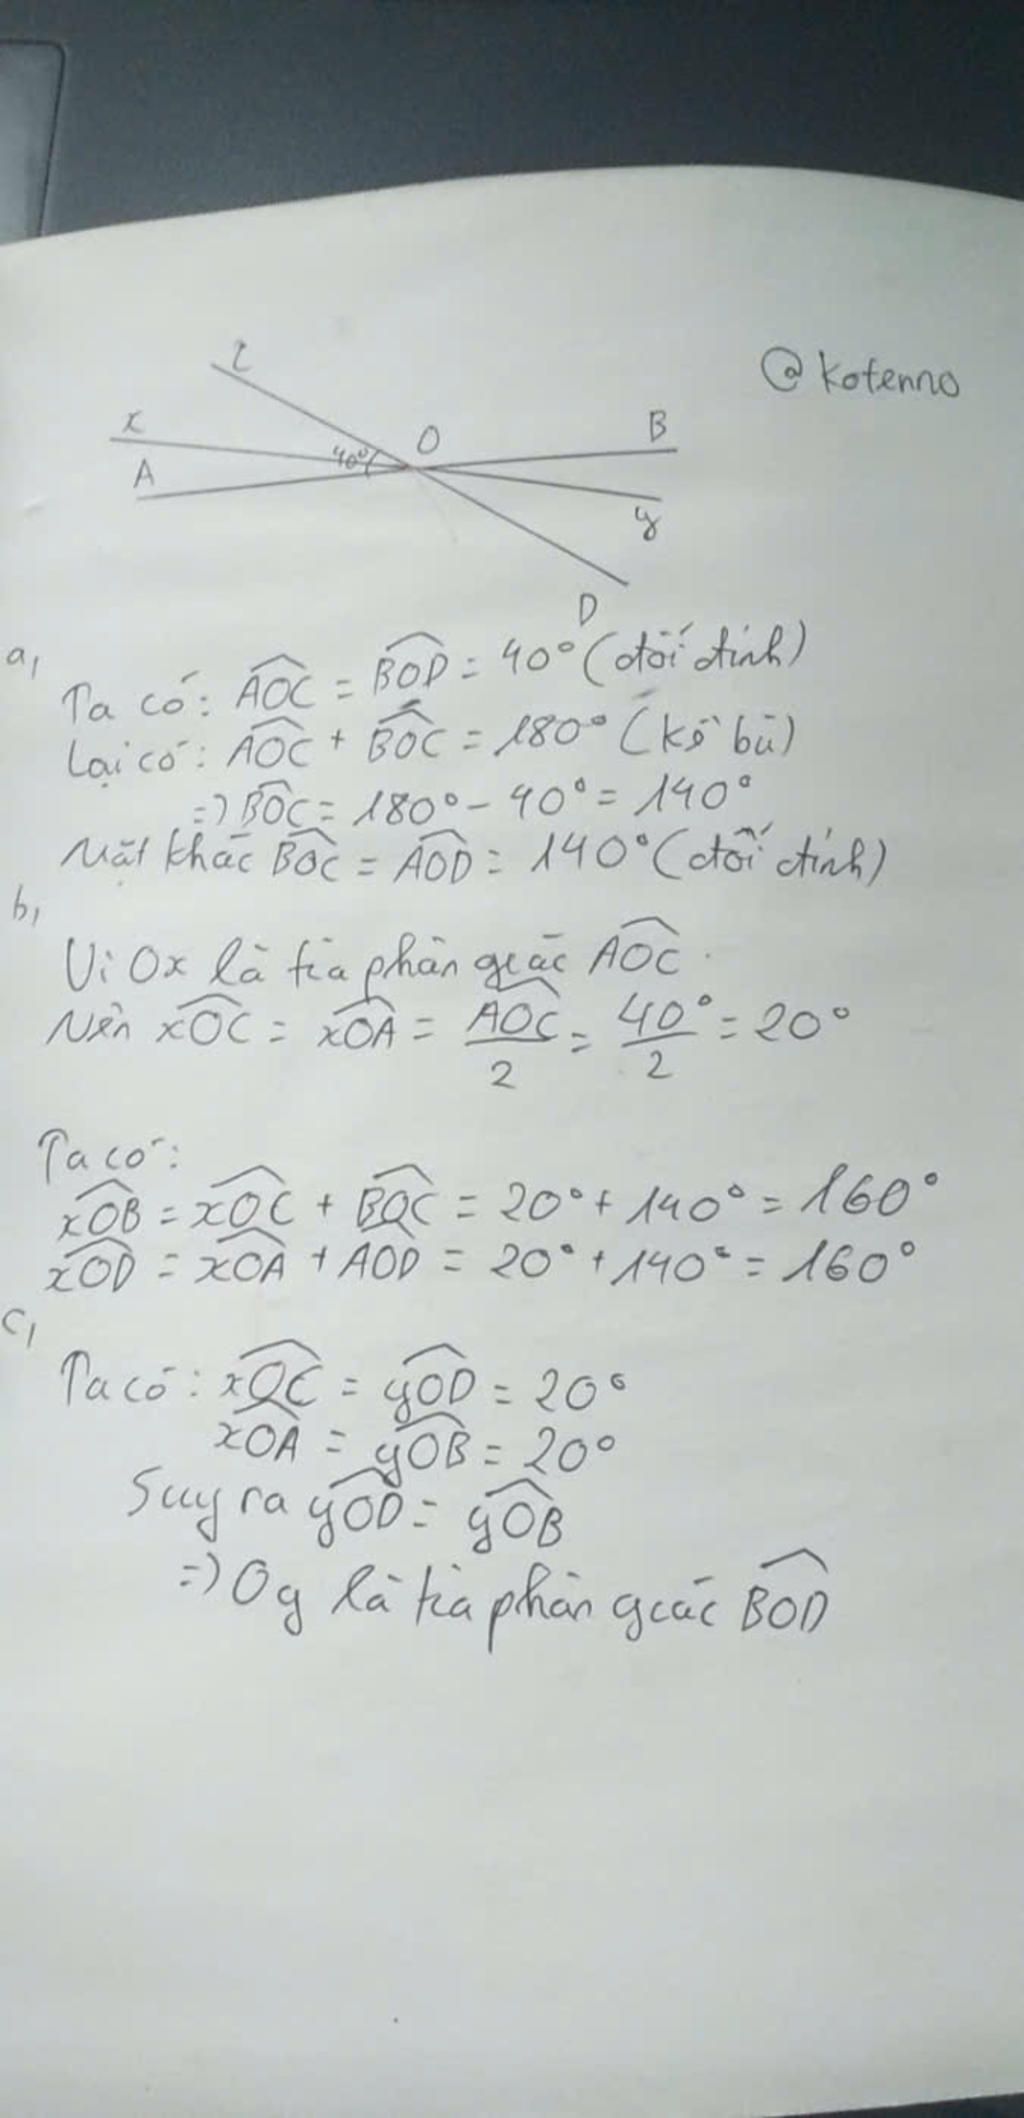 C
@ kotenno
x
O
B
40°
A
y
D
a,
Ta có: AOC = BOD = 40° (đối đỉnh)
Lại có: AOC + BOC = 180° (kề bù)
=> BOC = 180° - 40° = 140°
Mặt khác BOC = AOD = 140° (đối đỉnh)
b,
Vì Ox là tia phân giác AOC.
Nên xOC = xOA = AOC/2 = 40°/2 = 20°
Ta có:
xOB = xOC + BOC = 20° + 140° = 160°
xOD = xOA + AOD = 20° + 140° = 160°
c,
Ta có: xOC = yOD = 20°
xOA = yOB = 20°
Suy ra yOD = yOB
=> Oy là tia phân giác BOD